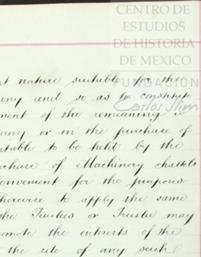 CENTRO DE
ESTUDIOS
DE HISTORIA
DE MEXICO
FUNDACIÓN
Carlos Slim
nature suitable for the
any and so as to constitute
ment of the remaining
any or in the purchase of
suitable to be held by the
purchase of Machinery chattels
convenient for the purposes
otherwise to apply the same
the Trustees or Trustee may
promote the interests of the
the site of any such